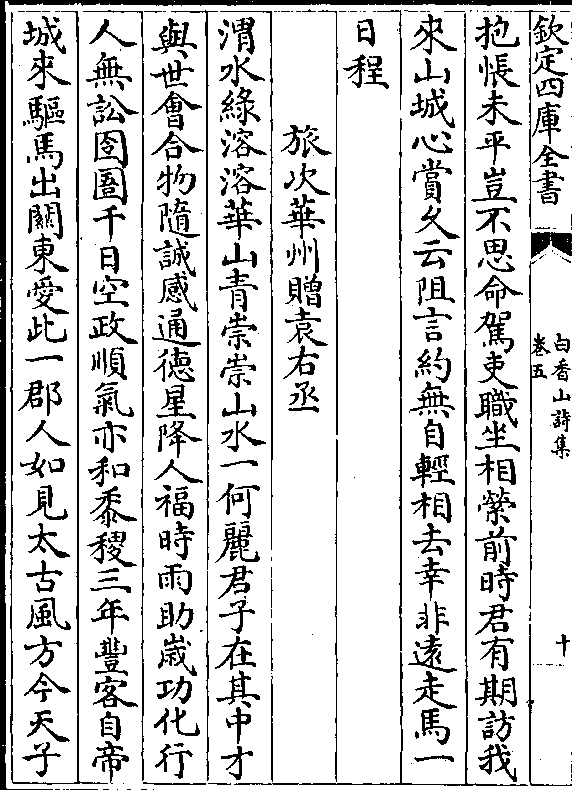 欽定四庫全書
白香山詩集
卷五
十
抱悵未平豈不思命駕吏職坐相縈前時君有期訪我
來山城心賞久云阻言約無自輕相去幸非遠走馬一
日程
旅次華州贈袁右丞
渭水綠溶溶華山青崇崇山水一何麗君子在其中才
與世會合物隨誠感通德星降人福時雨助嵗功化行
人無訟囹圄千日空政順氣亦和黍稷三年豐客自帝
城來驅馬出關東愛此一郡人如見太古風方今天子